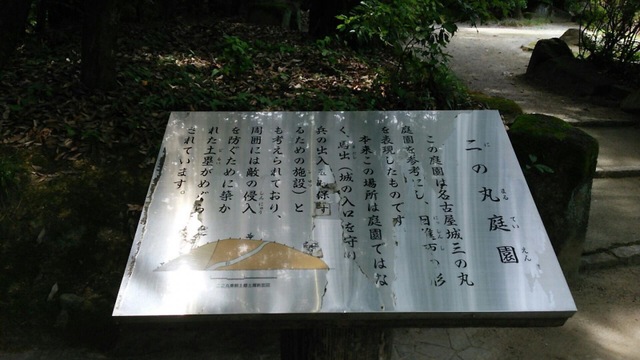 二の丸庭園
にのまるていえん
この庭園は名古屋城三の丸
庭園を参考にし、日進市の形
を表現したものです。
本来この場所は庭園ではな
く、馬出(城の入口を守り
兵の出入を確保す
るための施設)と
も考えられており、
周囲には敵の侵入
しんにゅう
を防ぐために築か
れた土塁がめぐら
されています。